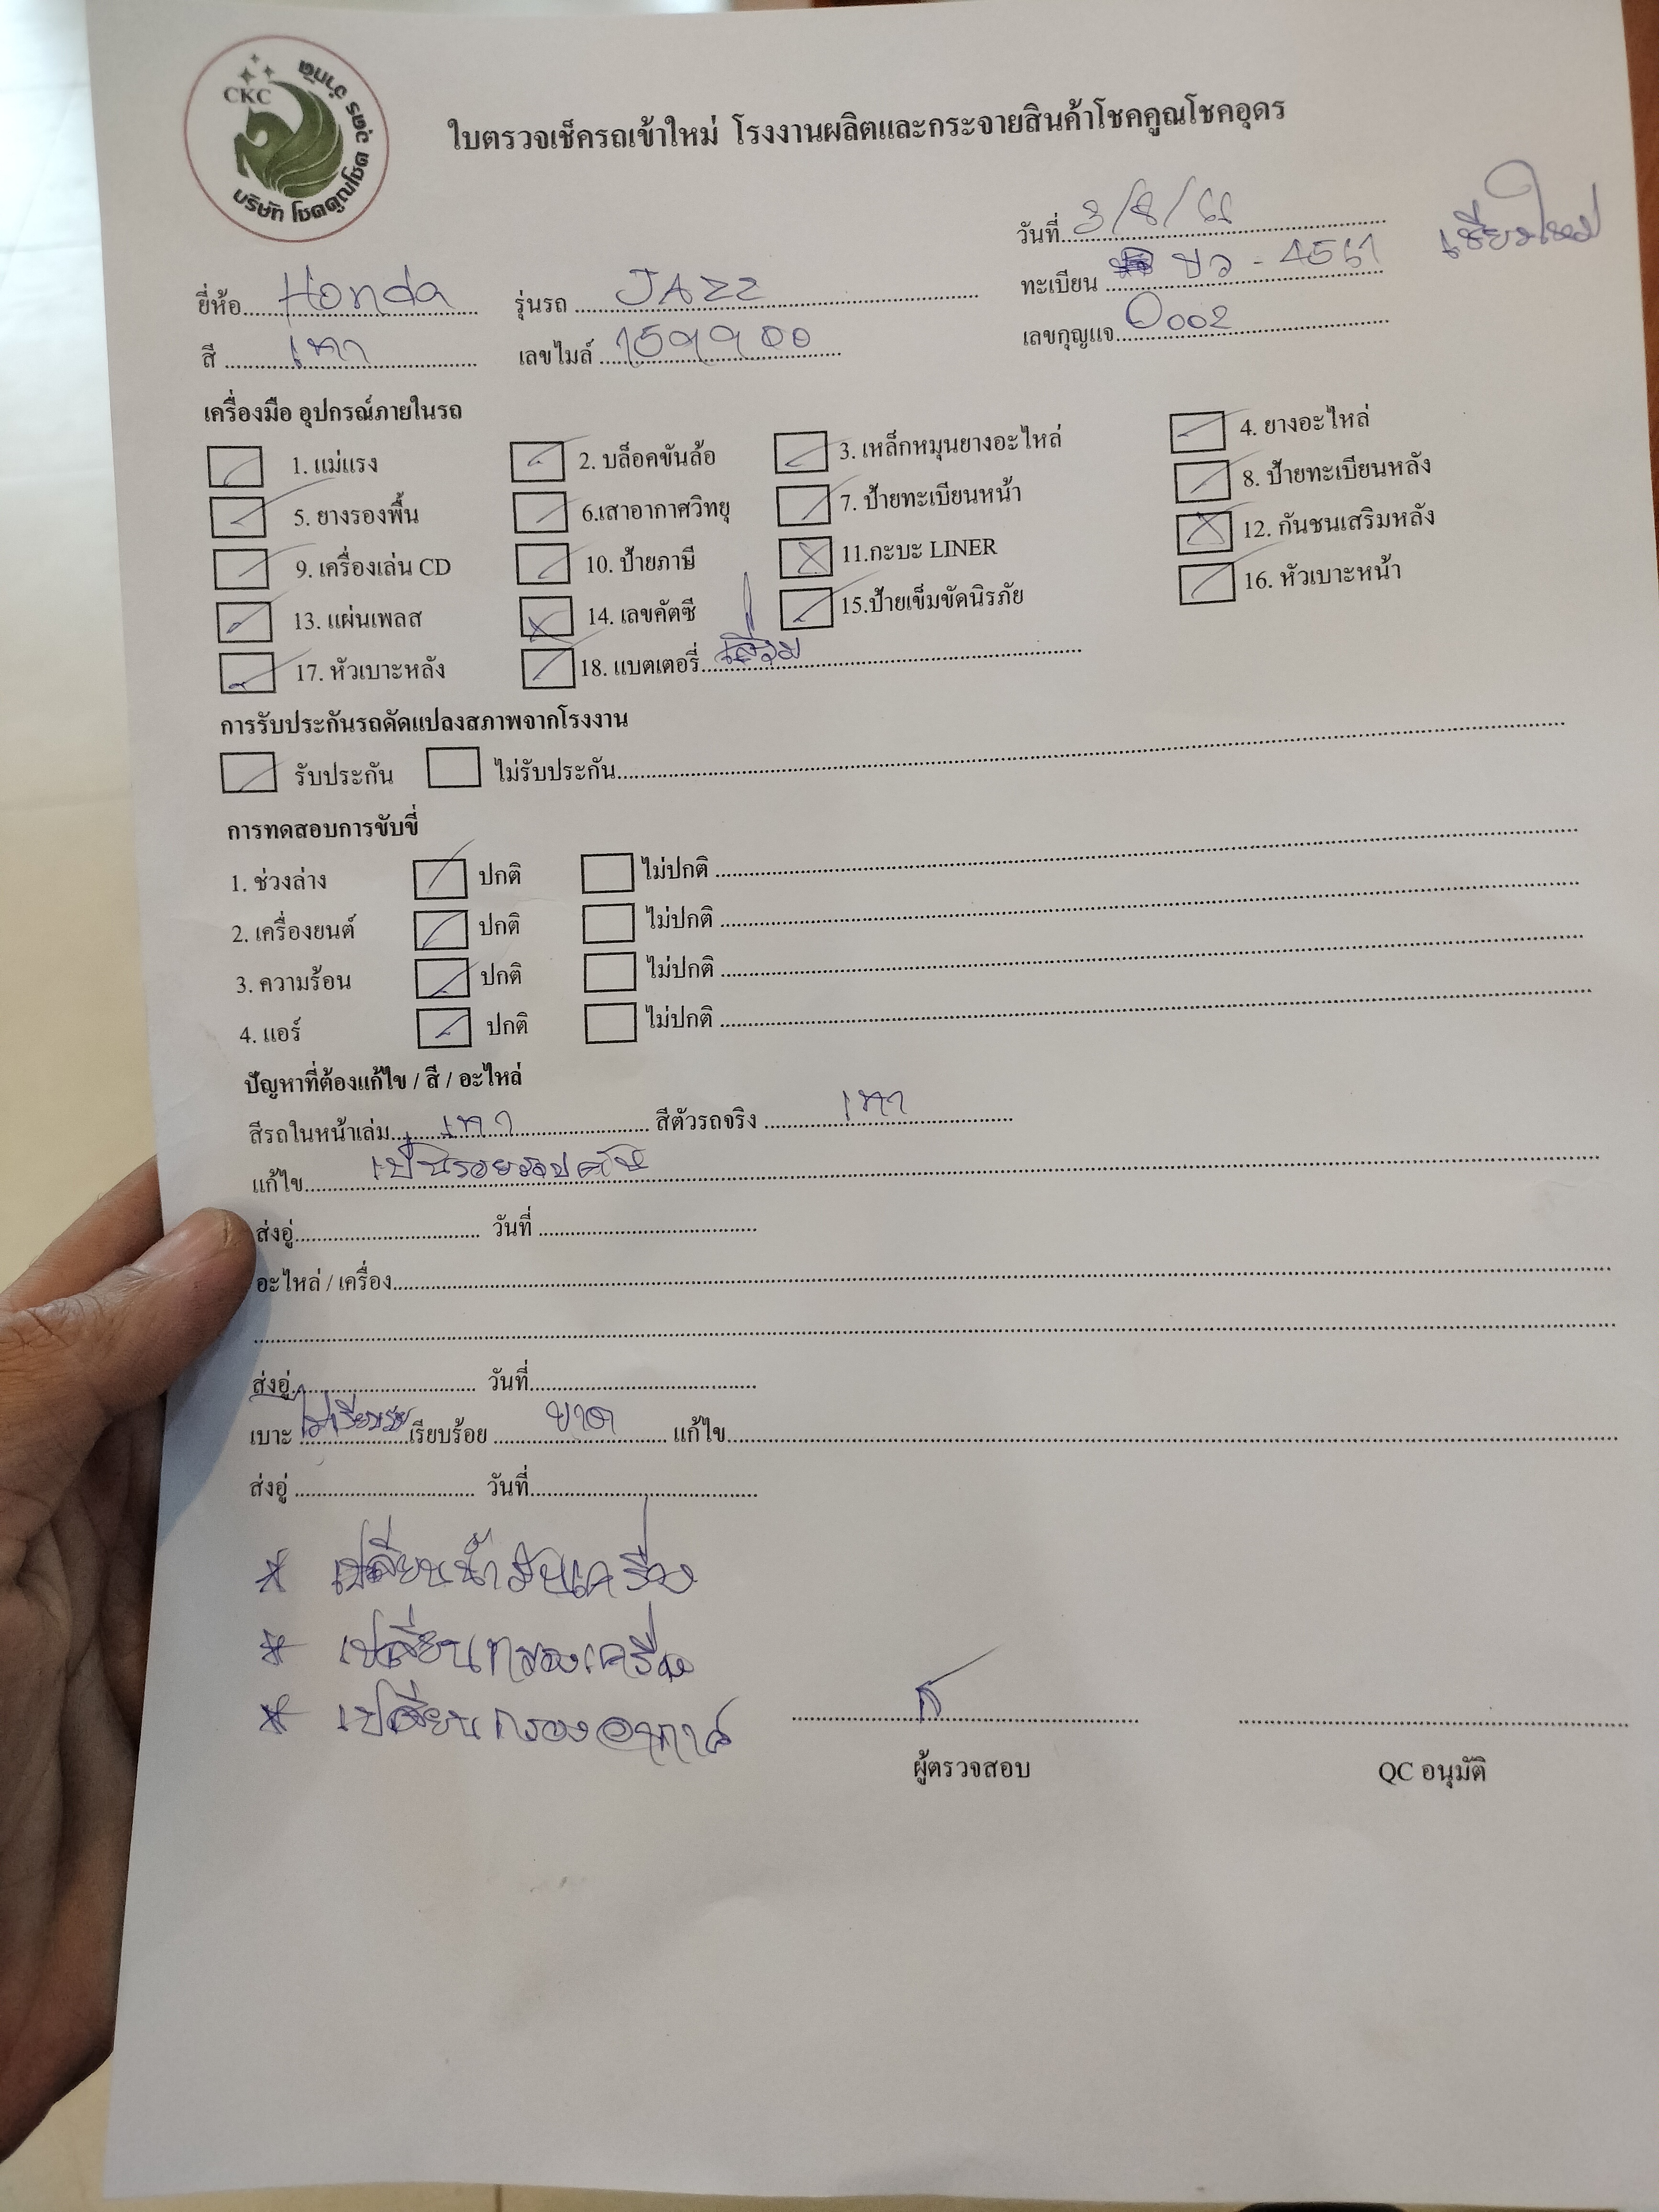 CKC
บริษัท โชคคูณโชค ตวัด จำกัด
ใบตรวจเช็ครถเข้าใหม่ โรงงานผลิตและกระจายสินค้าโชคคูณโชคอุดร
วันที่ 3/8/66 เชียงใหม่
ยี่ห้อ Honda รุ่นรถ JAZZ ทะเบียน ขว - 4561
สี เทา เลขไมล์ 159900 เลขกุญแจ 0002
เครื่องมือ อุปกรณ์ภายในรถ
1. แม่แรง 2. บล็อคขันล้อ 3. เหล็กหมุนยางอะไหล่ 4. ยางอะไหล่
5. ยางรองพื้น 6.เสาอากาศวิทยุ 7. ป้ายทะเบียนหน้า 8. ป้ายทะเบียนหลัง
9. เครื่องเล่น CD 10. ป้ายภาษี 11.กะบะ LINER 12. กันชนเสริมหลัง
13. แผ่นเพลส 14. เลขคัตซี 15.ป้ายเข็มขัดนิรภัย 16. หัวเบาะหน้า
17. หัวเบาะหลัง 18. แบตเตอรี่ เสื่อม
การรับประกันรถดัดแปลงสภาพจากโรงงาน
รับประกัน ไม่รับประกัน
การทดสอบการขับขี่
1. ช่วงล่าง ปกติ ไม่ปกติ
2. เครื่องยนต์ ปกติ ไม่ปกติ
3. ความร้อน ปกติ ไม่ปกติ
4. แอร์ ปกติ ไม่ปกติ
ปัญหาที่ต้องแก้ไข / สี / อะไหล่
สีรถในหน้าเล่ม เทา สีตัวรถจริง เทา
แก้ไข เป็นรอยรอบคัน
ส่งอู่ วันที่
อะไหล่ / เครื่อง
ส่งอู่ วันที่
เบาะ ไม่เรียบร้อย เรียบร้อย ขาด แก้ไข
ส่งอู่ วันที่
* เปลี่ยนน้ำมันเครื่อง
* เปลี่ยนกรองเครื่อง
* เปลี่ยนกรองอากาศ
ผู้ตรวจสอบ QC อนุมัติ